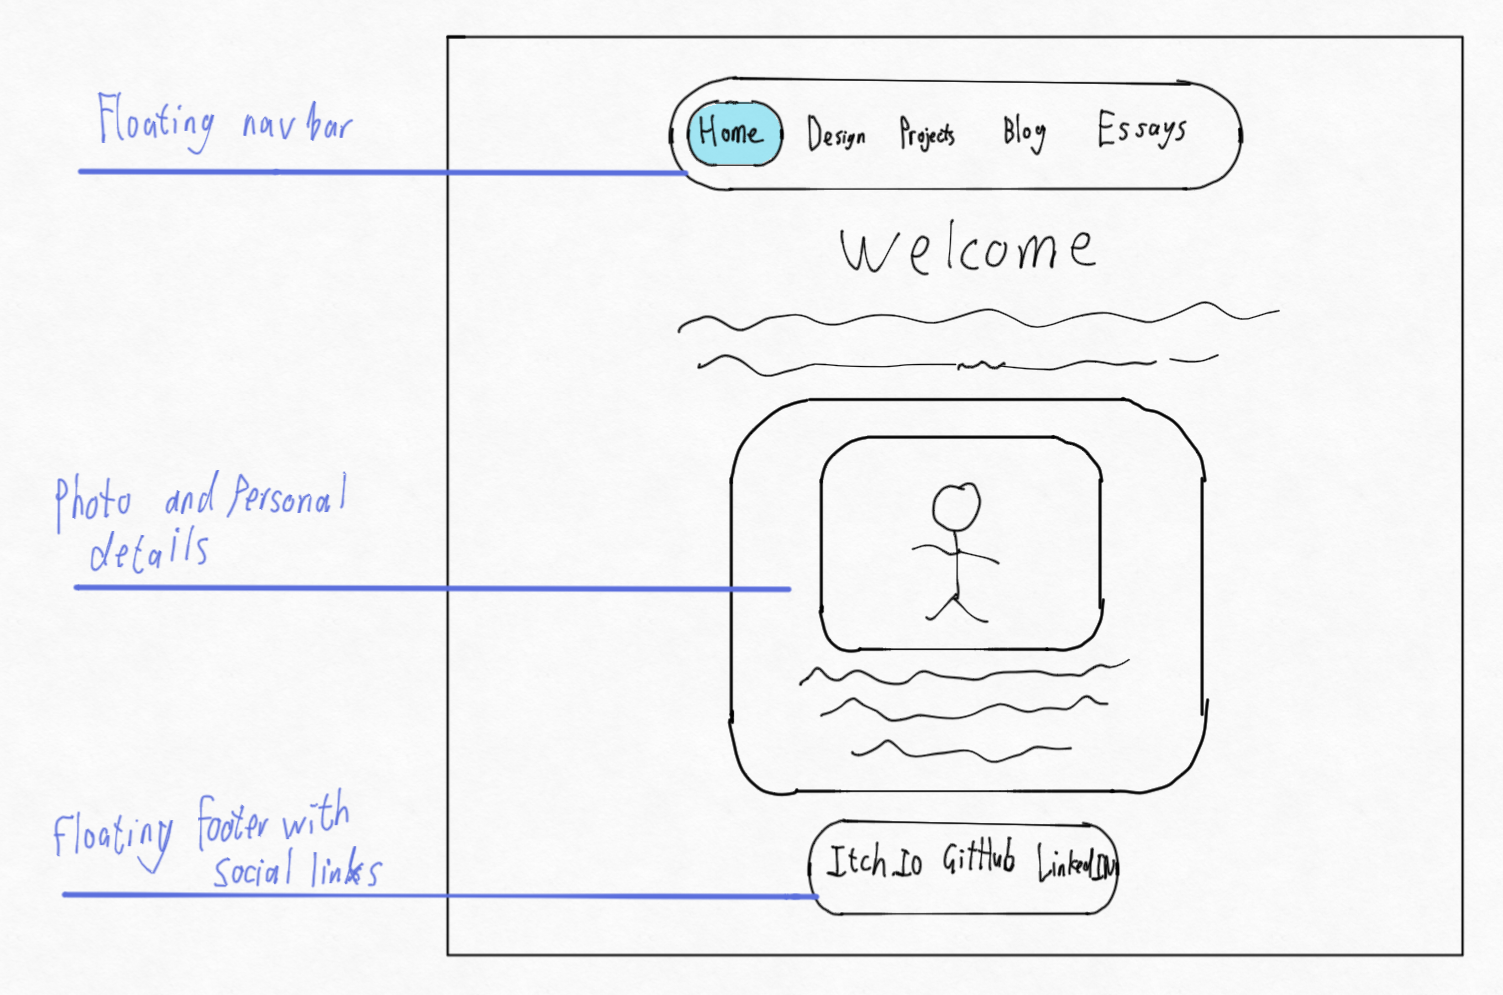 Floating nav bar
Home Design Projects Blog Essays
Welcome
Photo and Personal
details
Floating footer with
social links
Itch.Io GitHub LinkedIN